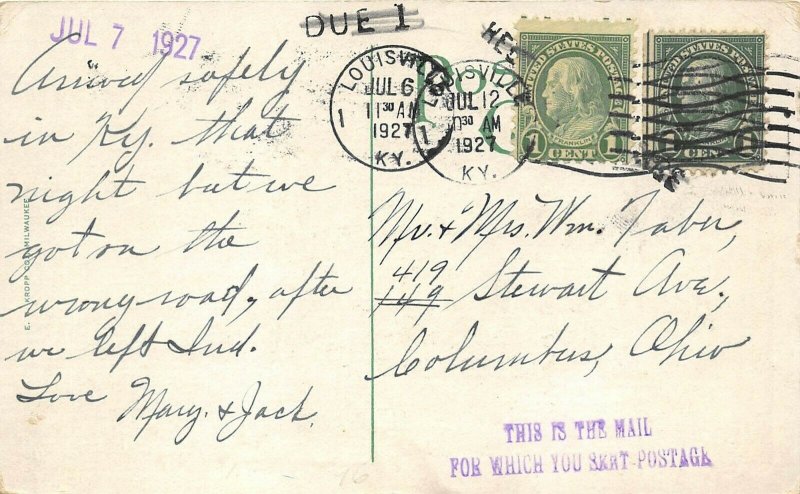 JUL 7 1927
DUE 1
Arrived safely
in Ky. that
night but we
got on the
wrong road, after
we left Ind.
Love
Mary. & Jack.
E. C. KROPP CO. MILWAUKEE
LOUISVILLE
JUL 6
11 30 AM
1927
1
KY.
LOUISVILLE
JUL 12
30 AM
1927
1
KY.
UNITED STATES POSTAGE
FRANKLIN
1 CENT 1
UNITED STATES POSTAGE
CENT
Mr. & Mrs. Wm. Taber,
419
149 Stewart Ave.,
Columbus, Ohio
THIS IS THE MAIL
FOR WHICH YOU SENT POSTAGE